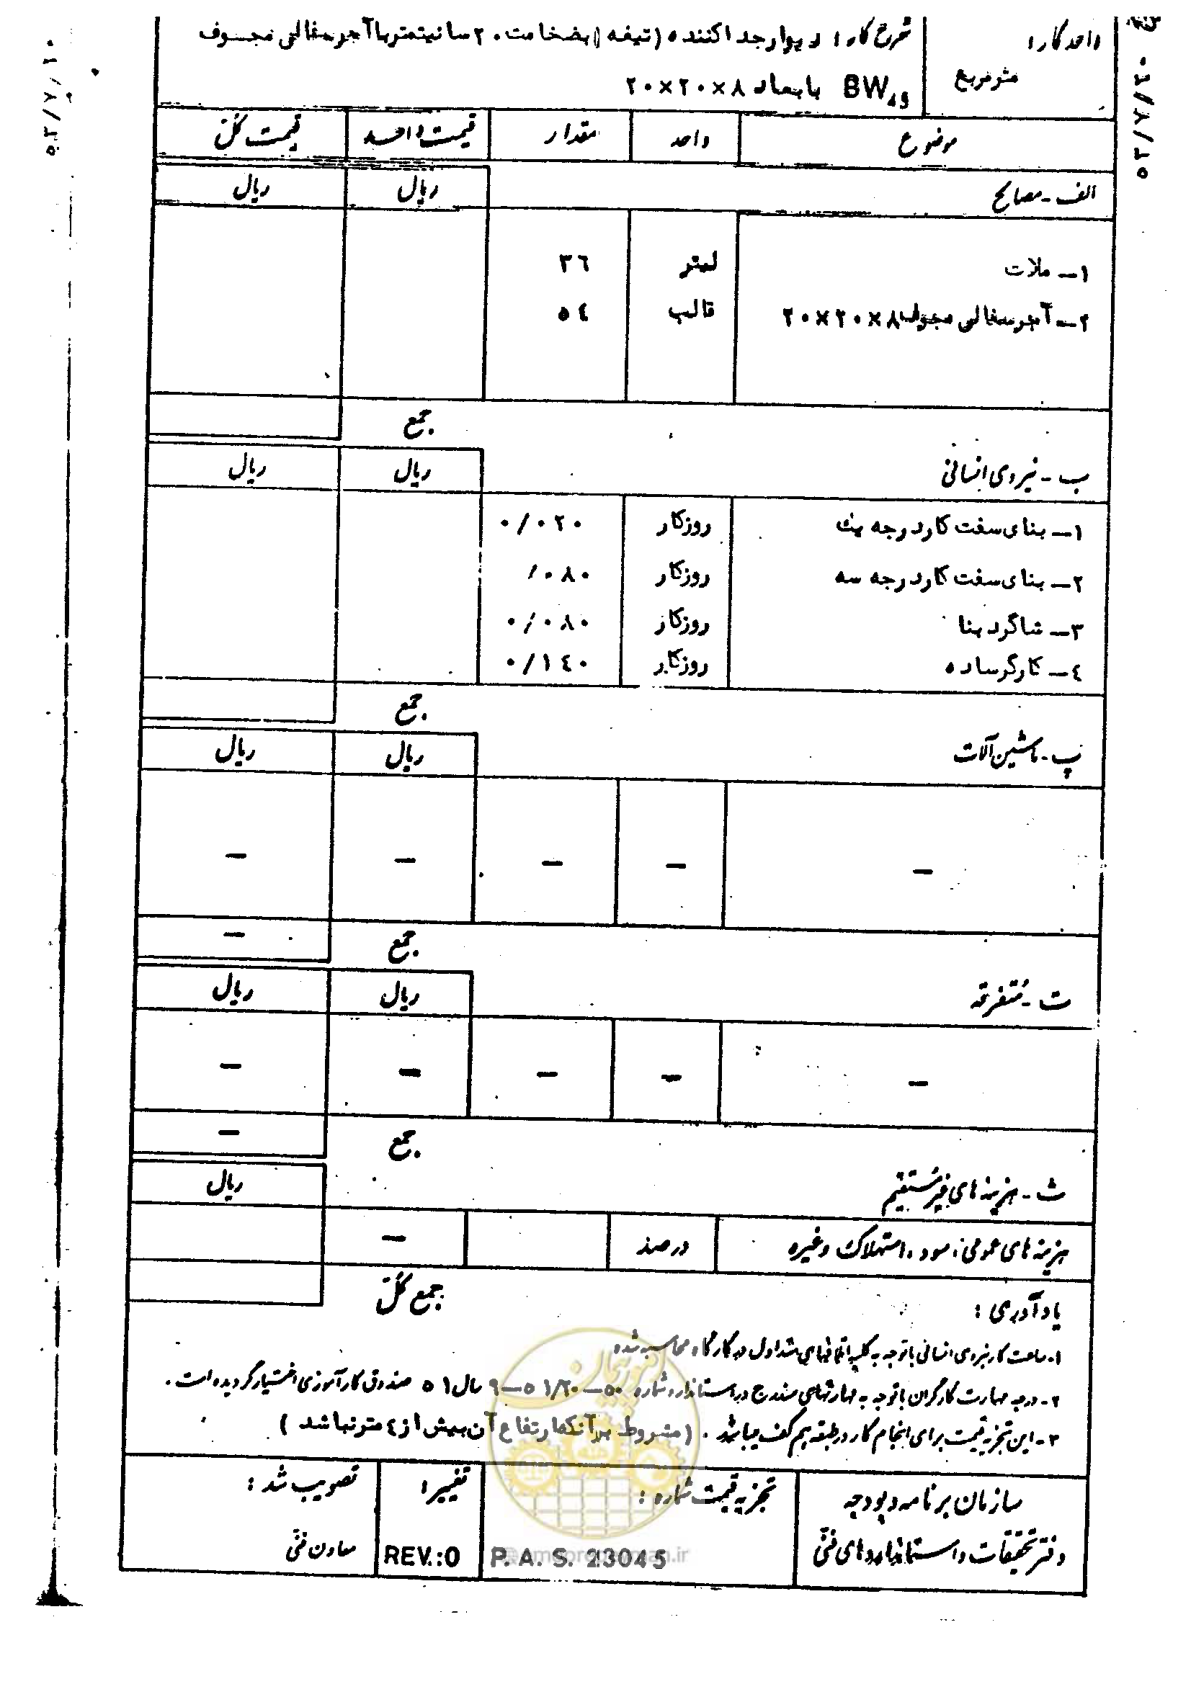 واحد کار: شرح کار: دیوار جدا کننده (تیغه) بضخامت ۲۰ سانیتمتر با آجر سفالی مجوف
متر مربع BW45 بابعاد ۸×۲۰×۲۰
موضوع واحد مقدار قیمت واحد قیمت کل
الف - مصالح ریال ریال
۱- ملات لیتر ۳۶
۲- آجر سفالی مجوف ۸×۲۰×۲۰ قالب ۵۴
جمع
ب - نیروی انسانی ریال ریال
۱- بنای سفت کار درجه یک روزکار ۰/۰۲۰
۲- بنای سفت کار درجه سه روزکار /۰۸۰
۳- شاگرد بنا روزکار ۰/۰۸۰
۴- کارگر ساده روزکار ۰/۱۴۰
جمع
پ - ماشین آلات ریال ریال
- - - - -
جمع -
ت - متفرقه ریال ریال
- - - - -
جمع -
ث - هزینه های غیر مستقیم ریال
هزینه های عمومی، سود، استهلاک و غیره درصد -
جمع کل
یادآوری:
۱- ساعت کار نیروی انسانی با توجه به کلیه اتفاقهای متداول در کارگاه محاسبه شده
۲- درجه مهارت کارگران با توجه به مهارتهای مندرج در استاندارد شماره ۵۰-۵۱/۲۰-۹ سال ۵۱ صندوق کارآموزی اختیار گردیده است.
۳- این تجزیه قیمت برای انجام کار در طبقه هم کف میباشد. (مشروط بر آنکه ارتفاع آن بیش از ۴ متر نباشد)
سازمان برنامه و بودجه تجزیه قیمت شماره: تغییر: تصویب شد:
دفتر تحقیقات و استانداردهای فنی P. A. S. 23045 REV.:0 معاون فنی